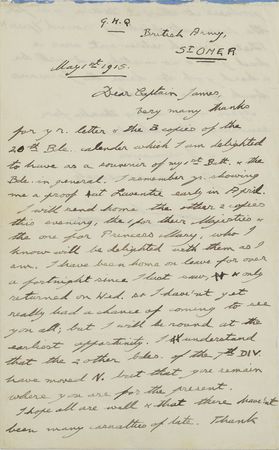 G.H.Q
British Army,
ST OMER
May 1st 1915.
Dear Captain James,
Very many thanks
for yr. letter & the 3 copies of the
20th Bde. calender which I am delighted
to have as a souvenir of my 1st Batt. & the
Bde. in general. I remember yr. showing
me a proof at Laventie early in April.
I will send home the other 2 copies
this evening, the for their Majesties &
the one for Princess Mary, who I
know will be delighted with them as I
am. I have been home on leave for over
a fortnight since I last saw, & only
returned on Wed. so I haven't yet
really had a chance of coming to see
you all; but I will be round at the
earliest opportunity. I understand
that the 2 other bdes. of the 7th DIV.
have moved N. but that you remain
where you are for the present.
I hope all are well & that there haven't
been many casualties of late. Thank